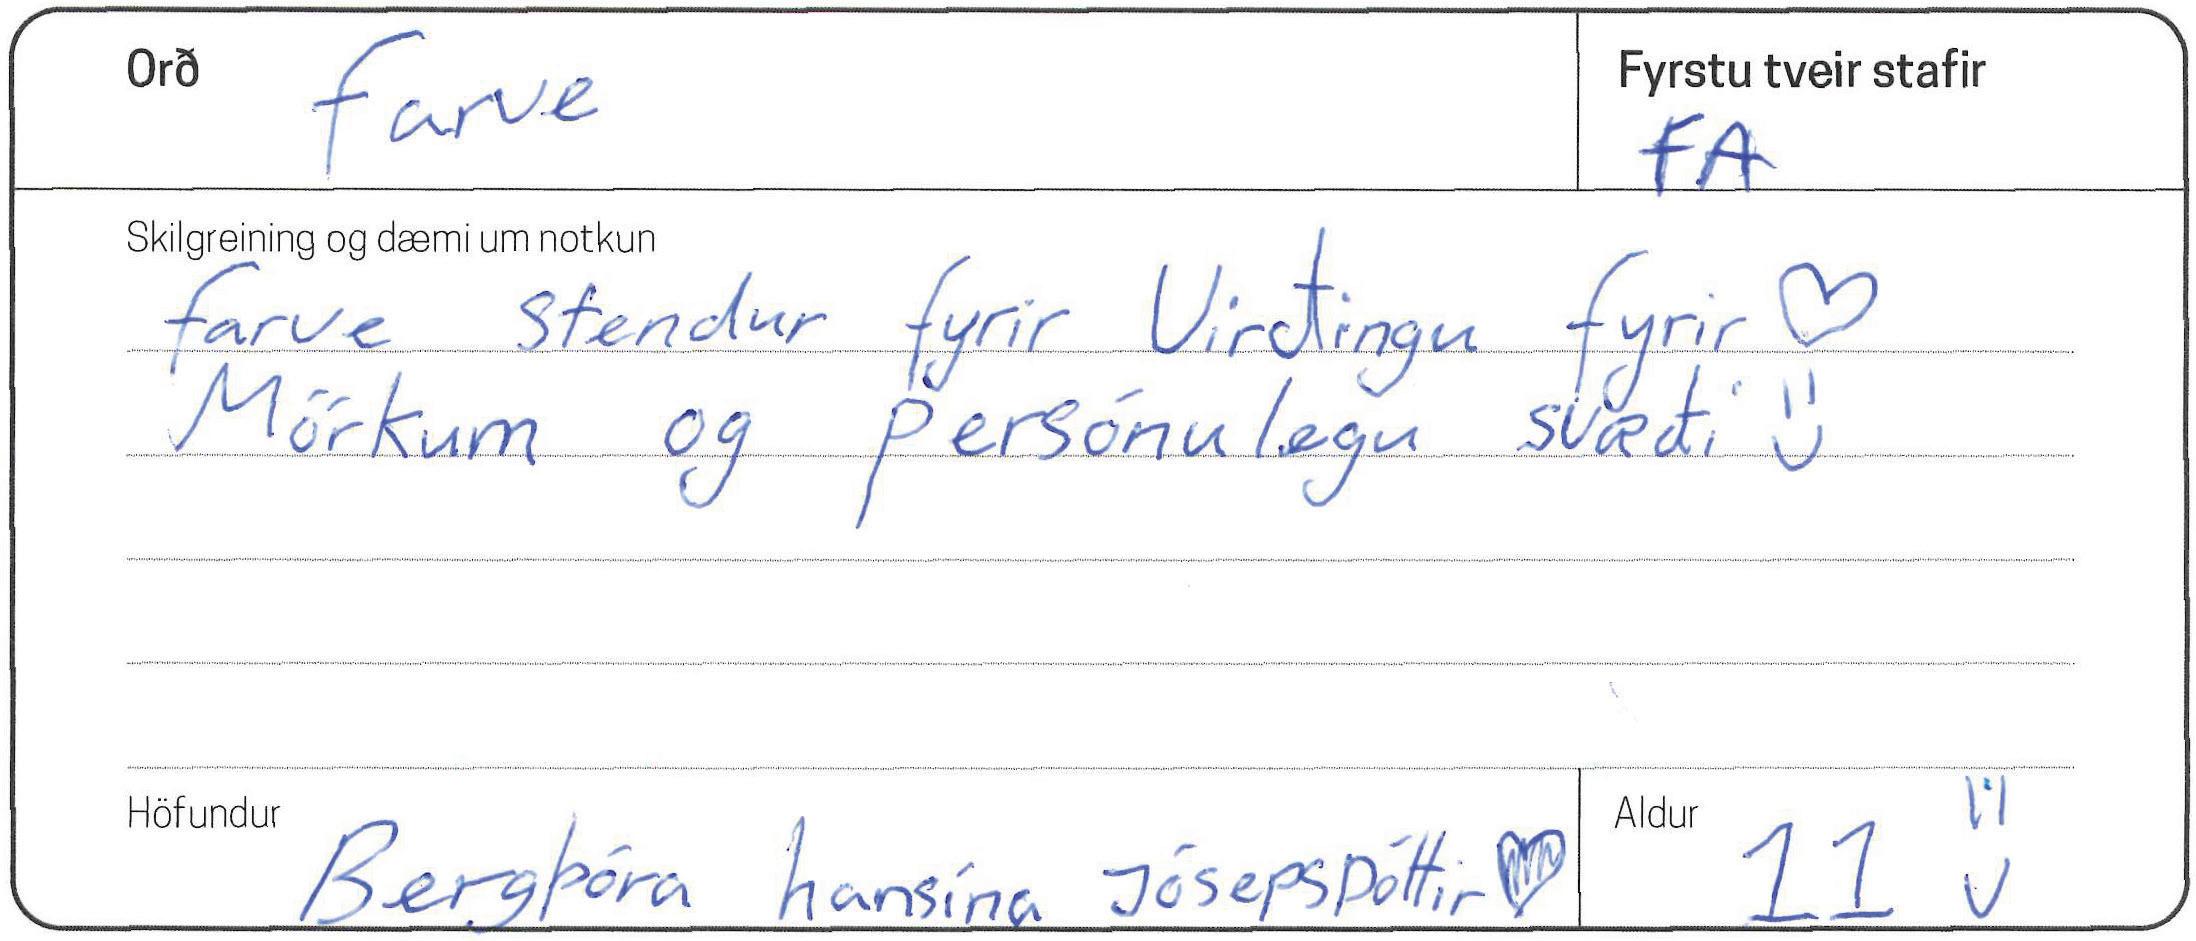 Orð farve
Fyrstu tveir stafir
FA
Skilgreining og dæmi um notkun
farve stendur fyrir Virðingu fyrir ♡
Mörkum og persónulegu svæði
Höfundur Bergþóra hansína JósepsDóttir ♡
Aldur 11